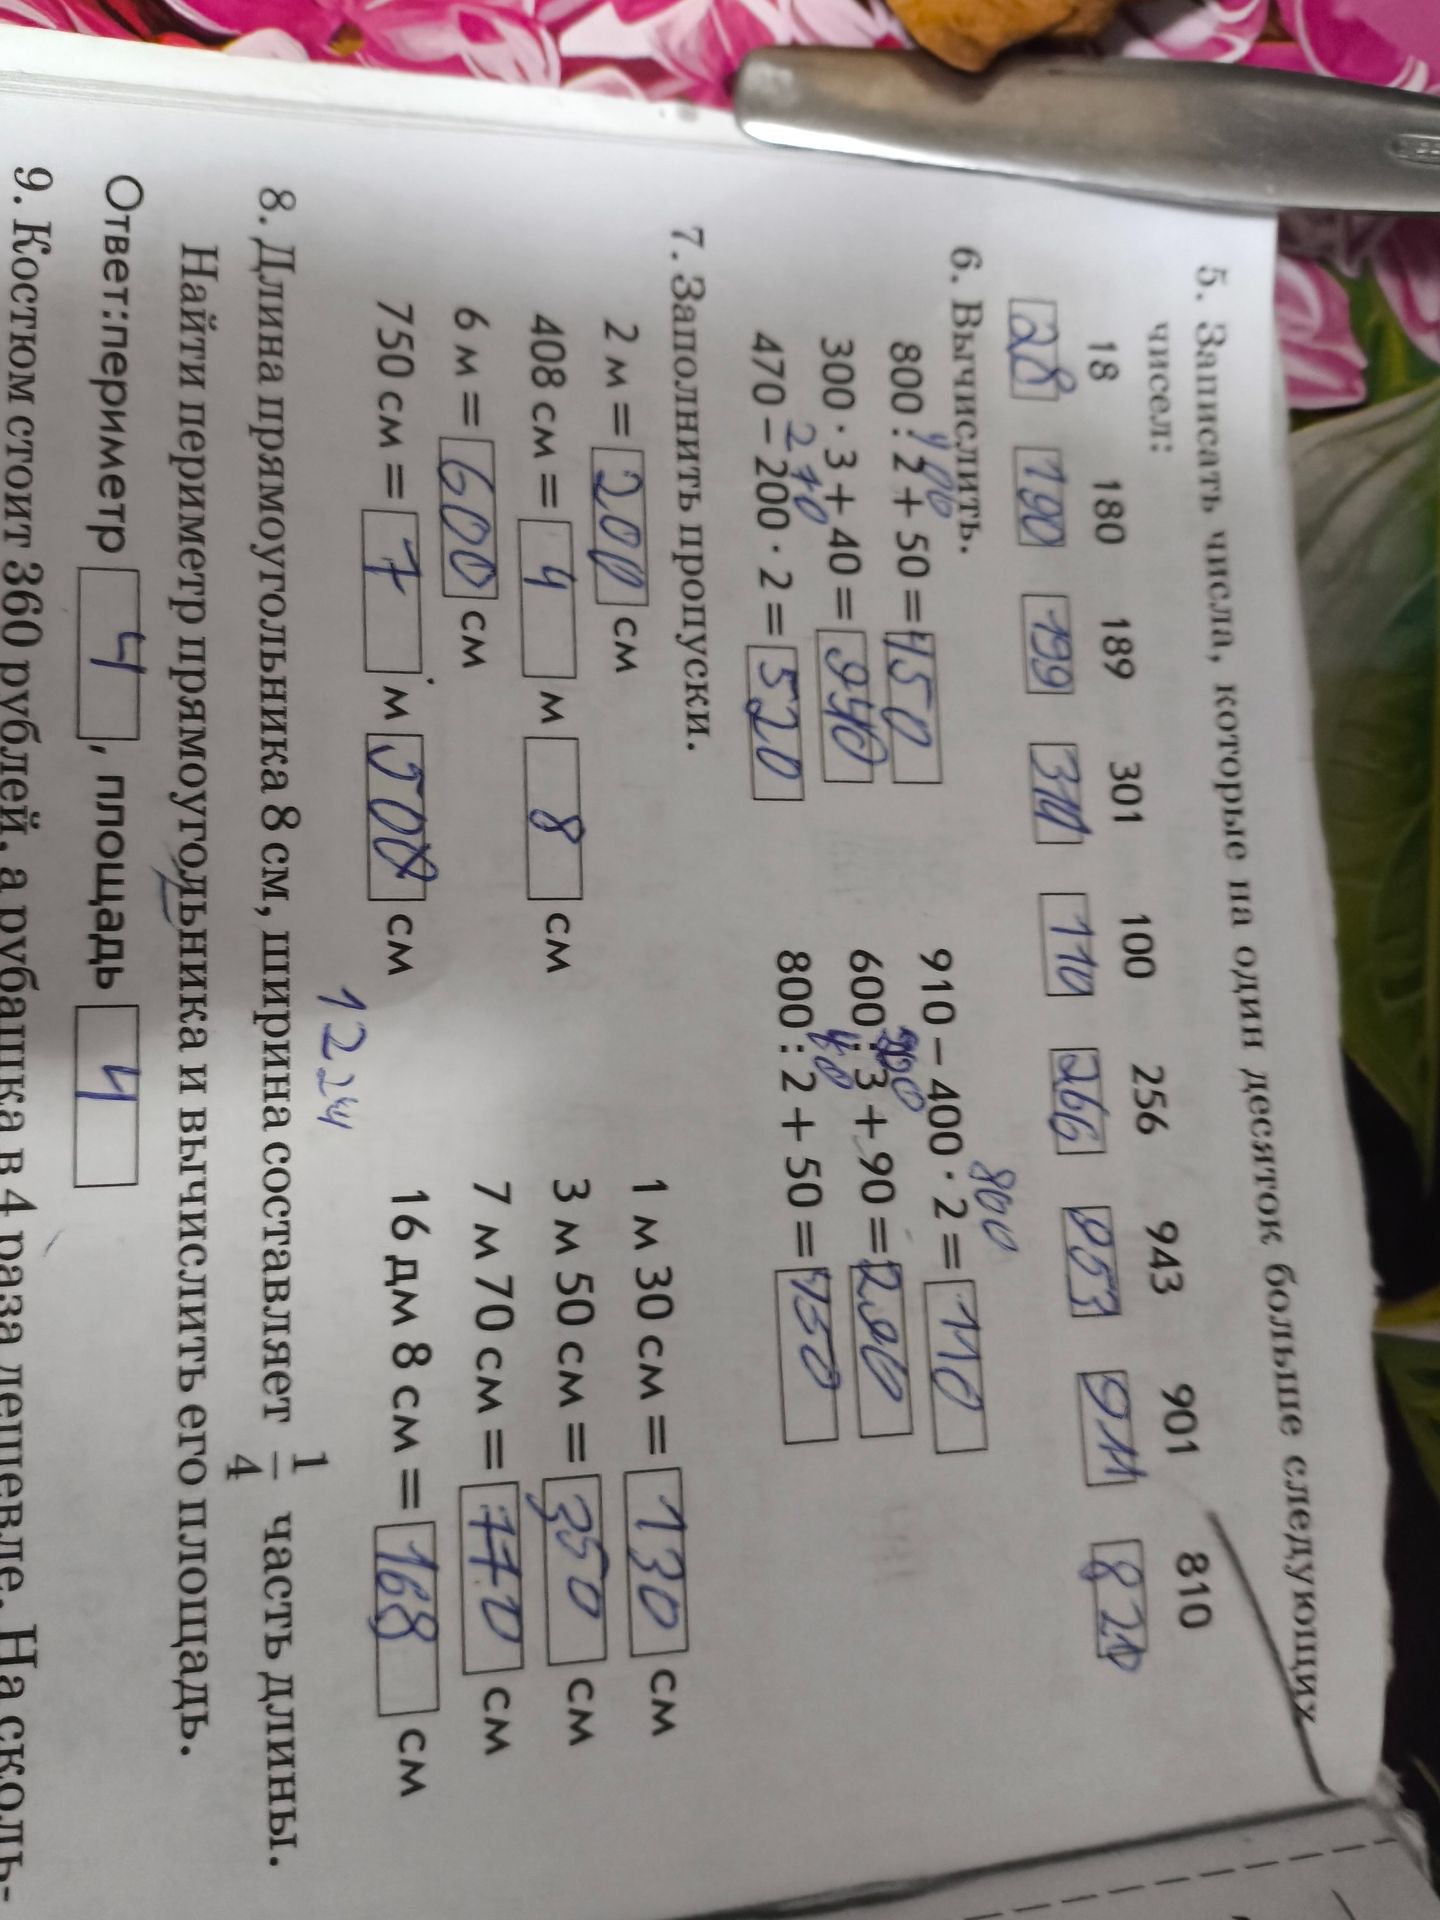 5. Записать числа, которые на один десяток больше следующих
чисел:
18 180 189 301 100 256 943 901 810
28 190 199 311 110 266 953 911 820
6. Вычислить.
800 : 2 + 50 = 450 910 − 400 · 2 = 110
400 800
300 · 3 + 40 = 940 600 : 3 + 90 = 290
470 − 200 · 2 = 520 800 : 2 + 50 = 450
270
7. Заполнить пропуски.
2 м = 200 см 1 м 30 см = 130 см
408 см = 4 м 8 см 3 м 50 см = 350 см
6 м = 600 см 7 м 70 см = 770 см
750 см = 7 м см 16 дм 8 см = 168 см
8. Длина прямоугольника 8 см, ширина составляет 1/4 часть длины.
Найти периметр прямоугольника и вычислить его площадь.
Ответ: периметр 4, площадь 4
9. Костюм стоит 360 рублей, а рубашка в 4 раза дешевле. На сколь-